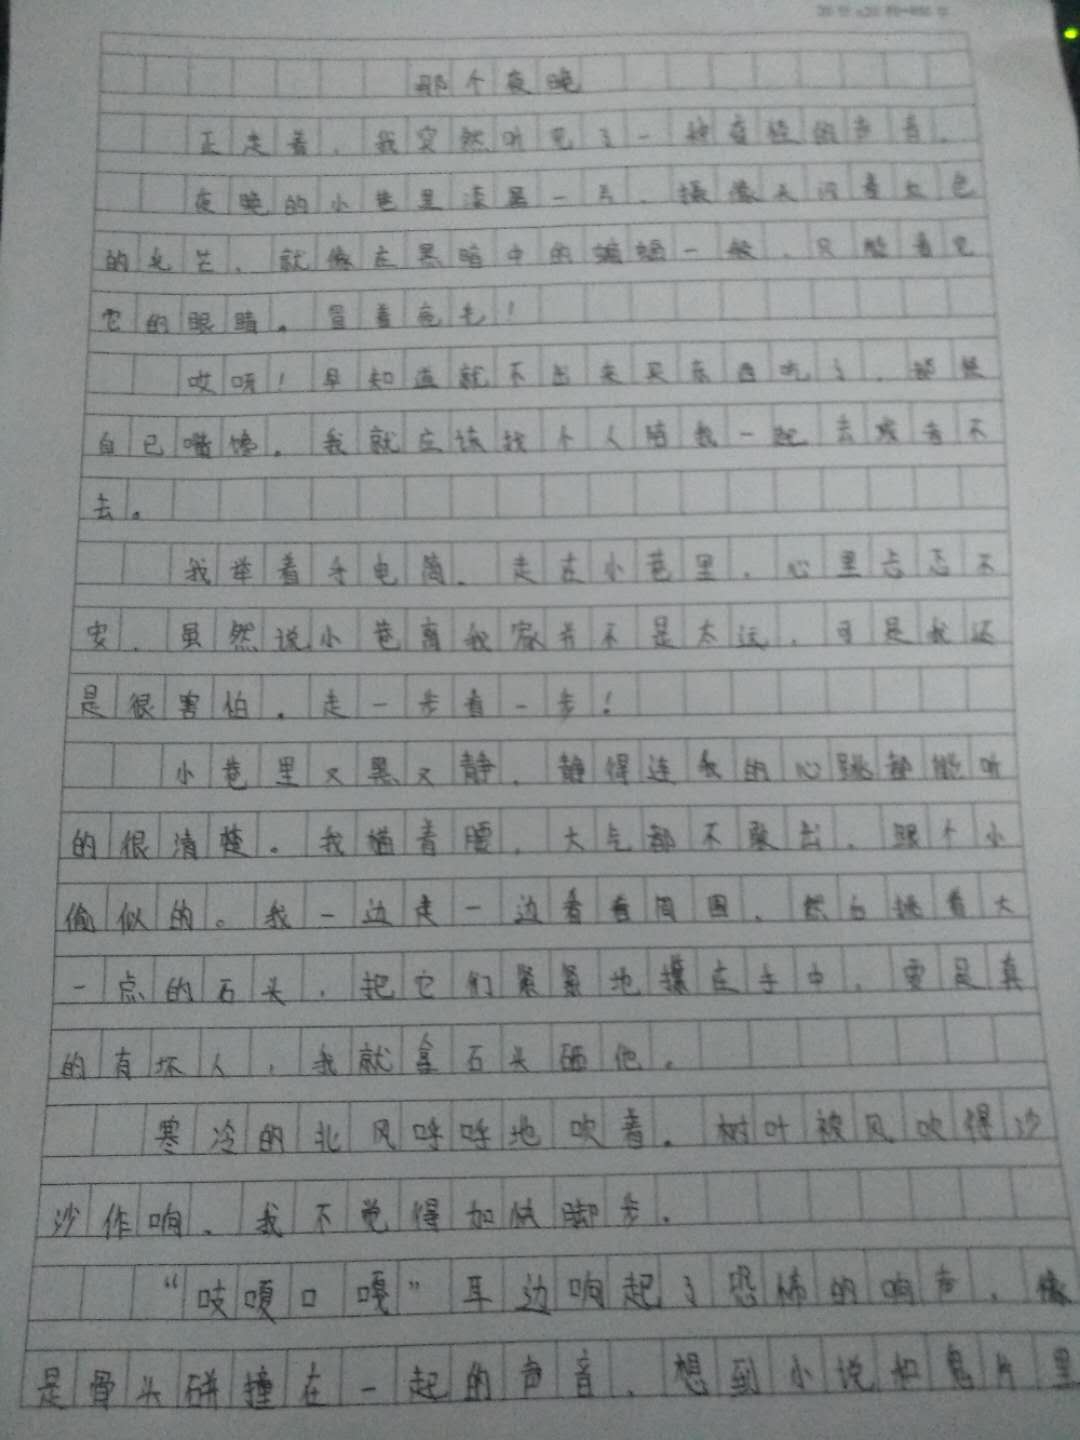 那个夜晚
正走着，我突然听见了一种奇怪的声音。
夜晚的小巷里漆黑一片，摄像头闪着红色
的光芒，就像在黑暗中的蝙蝠一般，只能看见
它的眼睛。冒着亮光！
哎呀！早知道就不出来买东西吃了，都怪
自己嘴馋。我就应该找个人陪我一起去或者不
去。
我举着手电筒，走在小巷里，心里忐忑不
安，虽然说小巷离我家并不是太远，可是我还
是很害怕。走一步看一步！
小巷里又黑又静，静得连我的心跳都能听
的很清楚。我猫着腰，大气都不敢出，跟个小
偷似的。我一边走一边看看周围，然后挑着大
一点的石头，把它们紧紧地攥在手中，要是真
的有坏人，我就拿石头砸他。
寒冷的北风呼呼地吹着。树叶被风吹得沙
沙作响，我不觉得加快脚步。
“吱嘎口嘎”耳边响起了恐怖的响声，像
是骨头碰撞在一起的声音，想到小说和鬼片里